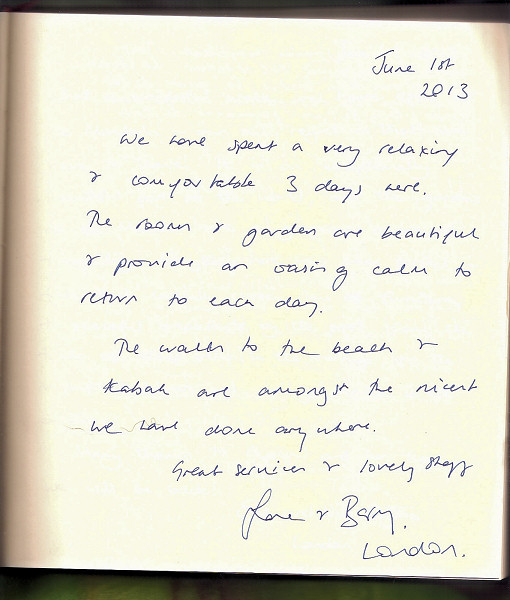 June 1st
2013
We have spent a very relaxing
& comfortable 3 days here.
The rooms & garden are beautiful
& provide an oasis of calm to
return to each day.
The walks to the beach &
Kabak are amongst the nicest
we have done anywhere.
Great services & lovely staff
& Barry.
London.